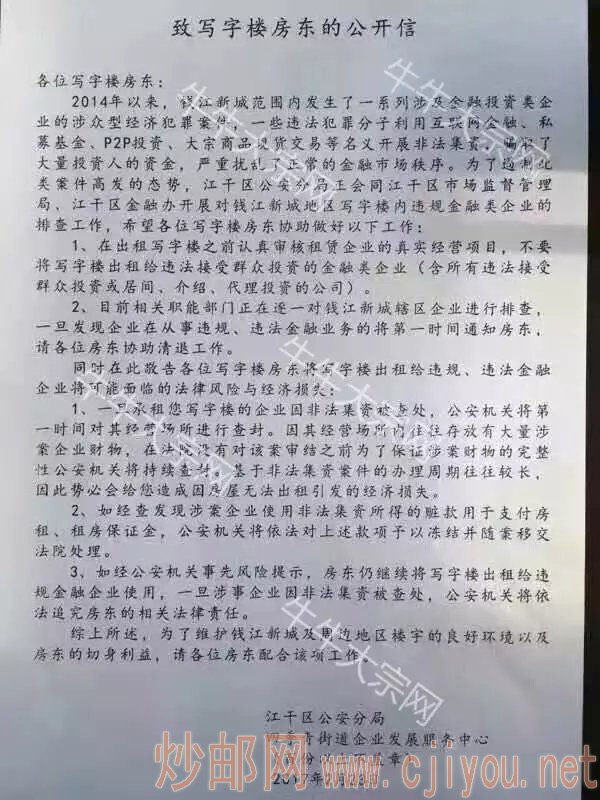 致写字楼房东的公开信
各位写字楼房东：
2014年以来，钱江新城范围内发生了一系列涉及金融投资类企
业的涉众型经济犯罪案件，一些违法犯罪分子利用互联网金融、私
募基金、P2P投资、大宗商品现货交易等名义开展非法集资，骗取了
大量投资人的资金，严重扰乱了正常的金融市场秩序。为了遏制此
类案件高发的态势，江干区公安分局正会同江干区市场监督管理
局、江干区金融办开展对钱江新城地区写字楼内违规金融类企业的
排查工作，希望各位写字楼房东协助做好以下工作：
1、在出租写字楼之前认真审核租赁企业的真实经营项目，不要
将写字楼出租给违法接受群众投资的金融类企业（含所有违法接受
群众投资或居间、介绍、代理投资的公司）。
2、目前相关职能部门正在逐一对钱江新城辖区企业进行排查，
一旦发现企业在从事违规、违法金融业务的将第一时间通知房东，
请各位房东协助清退工作。
同时在此敬告各位写字楼房东将写字楼出租给违规、违法金融
企业将可能面临的法律风险与经济损失：
1、一旦承租您写字楼的企业因非法集资被查处，公安机关将第
一时间对其经营场所进行查封。因其经营场所内往往存放有大量涉
案企业财物，在法院没有对该案审结之前为了保证涉案财物的完整
性公安机关将持续查封。基于非法集资案件的办理周期往往较长，
因此势必会给您造成因房屋无法出租引发的经济损失。
2、如经查发现涉案企业使用非法集资所得的赃款用于支付房
租、租房保证金，公安机关将依法对上述款项予以冻结并随案移交
法院处理。
3、如经公安机关事先风险提示，房东仍继续将写字楼出租给违
规金融企业使用，一旦涉事企业因非法集资被查处，公安机关将依
法追究房东的相关法律责任。
综上所述，为了维护钱江新城及周边地区楼宇的良好环境以及
房东的切身利益，请各位房东配合该项工作。
江干区公安分局
四季青街道企业发展服务中心
2017年2月28日
牛牛大宗网
牛牛大宗网
牛牛大宗网
牛牛大宗网
牛牛大宗网
炒邮网 www.cjiyou.net